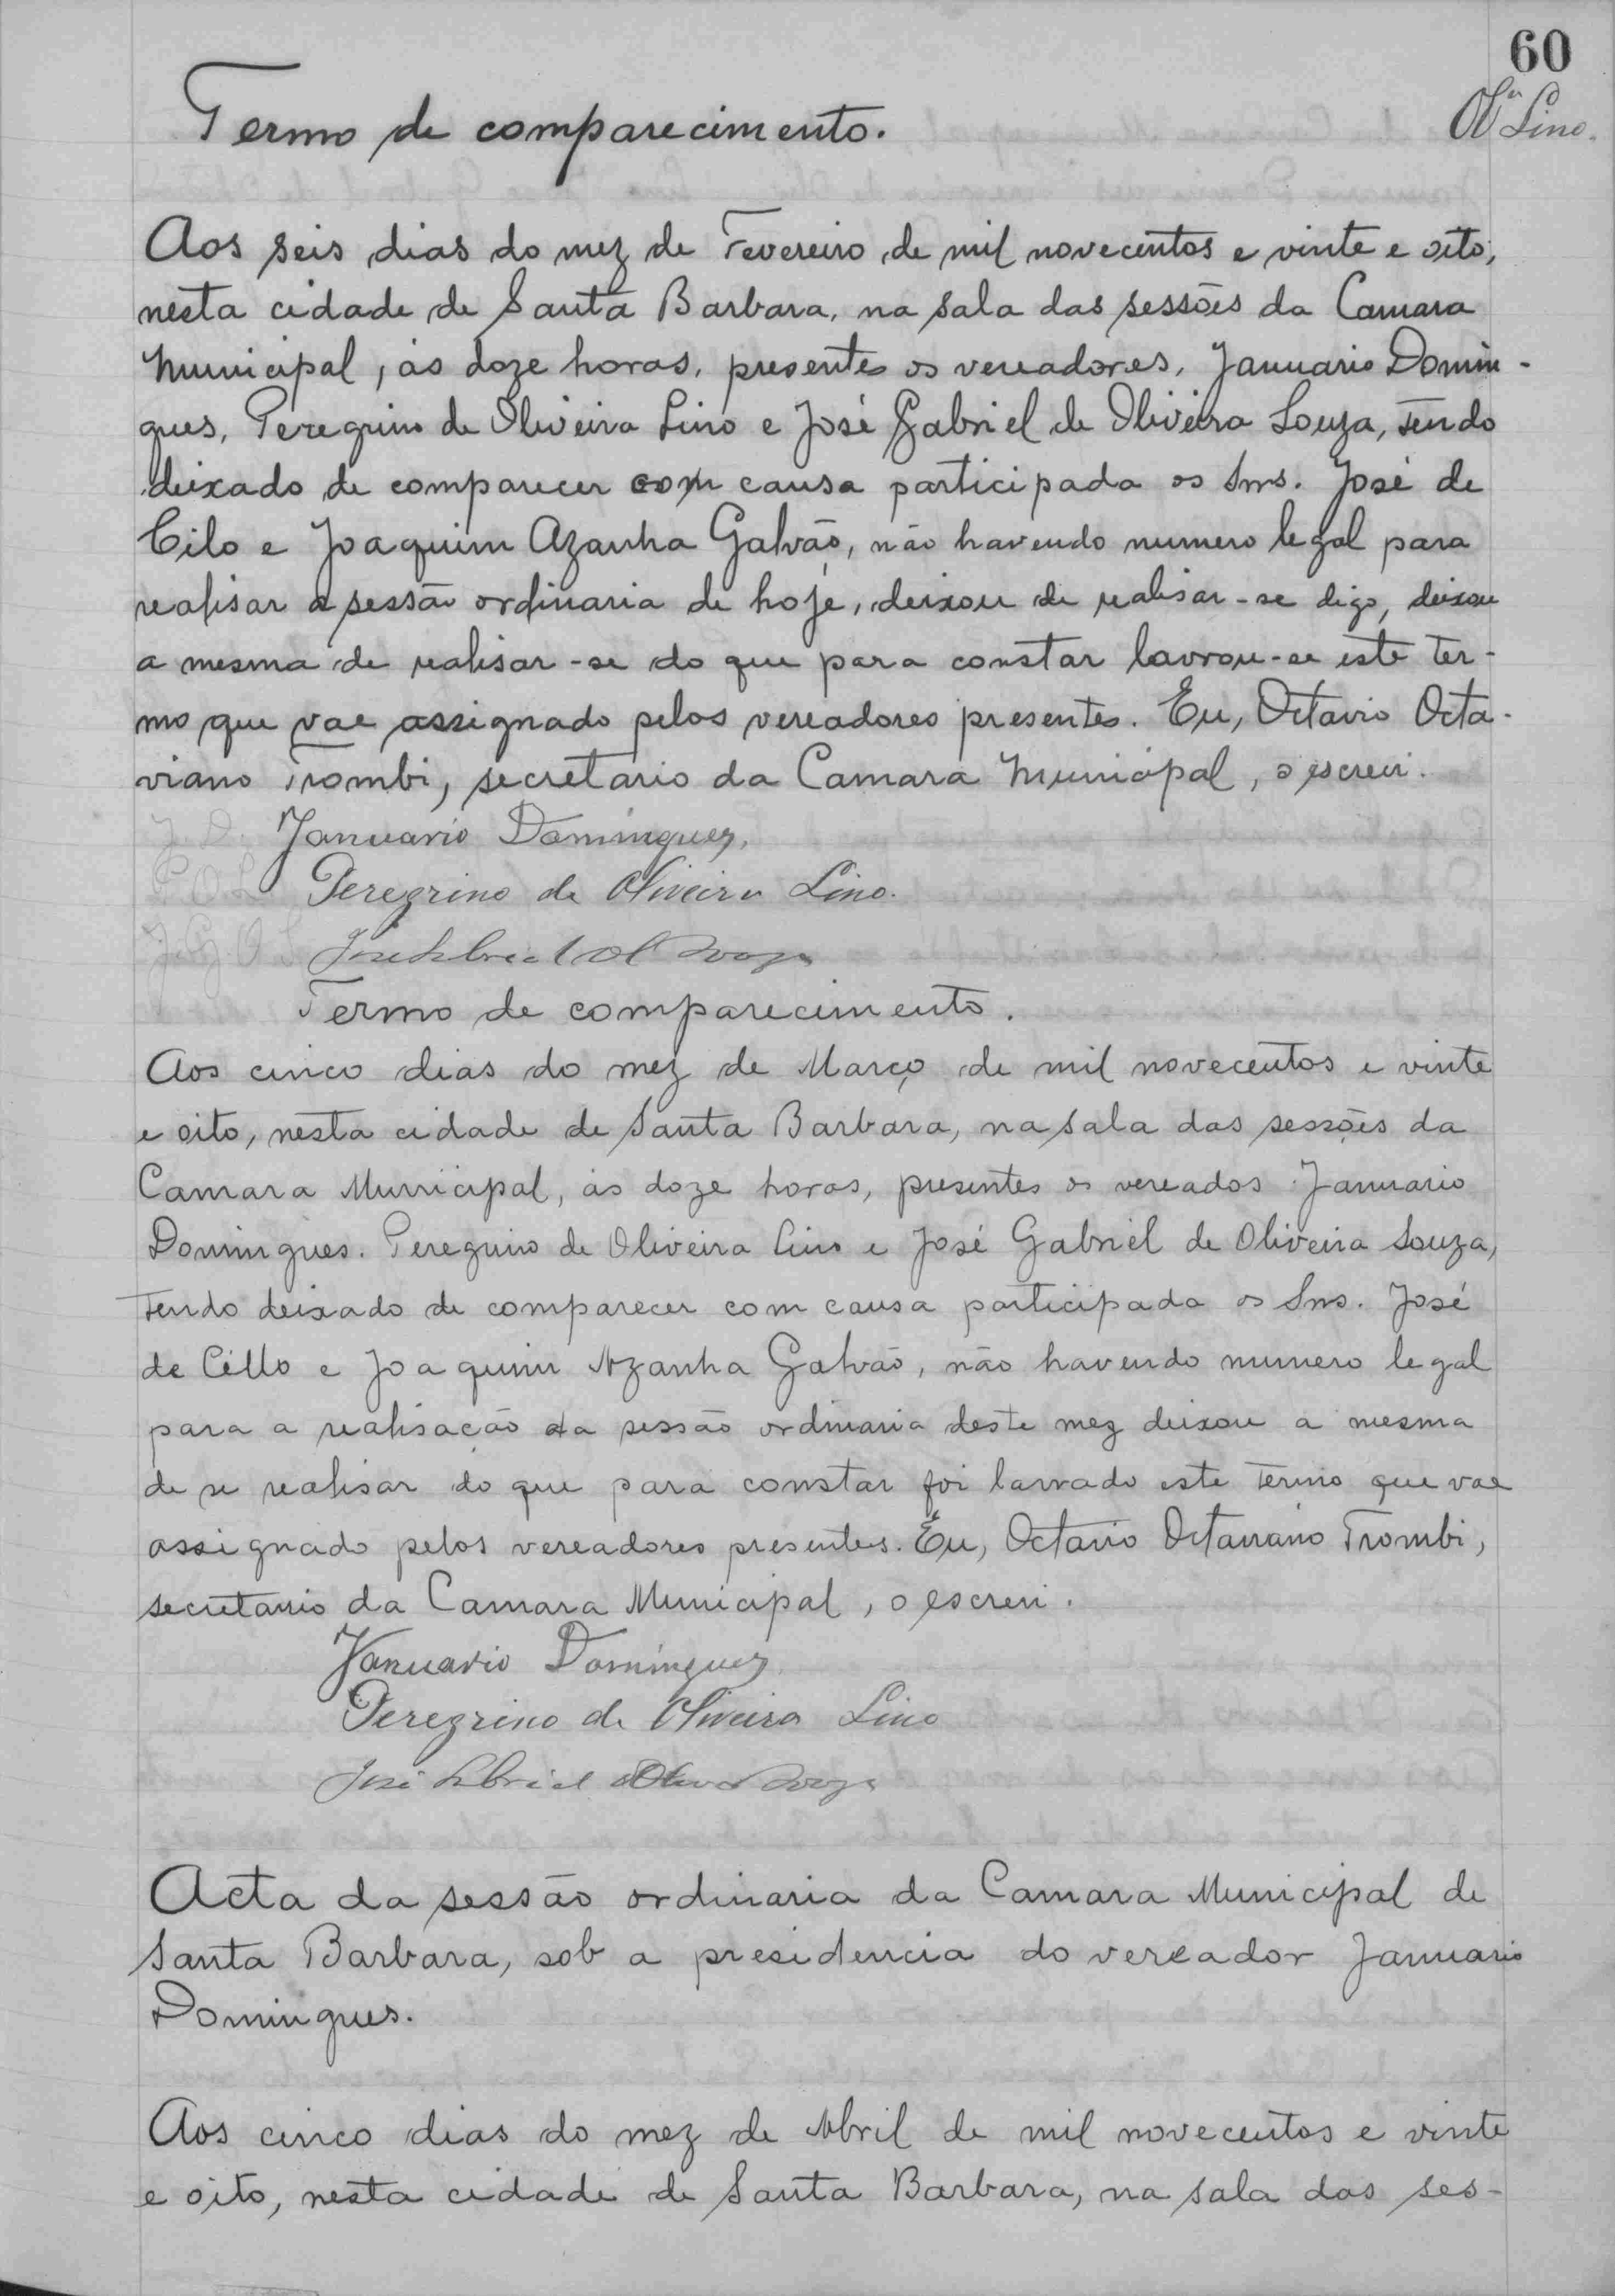 60
Lino.
Termo de comparecimento.
Aos seis dias do mez de Fevereiro de mil novecentos e vinte e oito,
nesta cidade de Santa Barbara, na sala das sessões da Camara
Municipal, ás doze horas, presentes os vereadores, Januario Domin-
gues, Peregrino de Oliveira Lino e José Gabriel de Oliveira Souza, tendo
deixado de comparecer com causa participada os Snrs. José de
Cilo e Joaquim Azanha Galvão, não havendo numero legal para
realisar a sessão ordinaria de hoje, deixou de realisar-se digo, deixou
a mesma de realisar-se do que para constar lavrou-se este ter-
mo que vae assignado pelos vereadores presentes. Eu, Octavio Octa-
viano Trombi, secretario da Camara Municipal, o escrevi.
J. D. Januario Domingues,
P. O. L. Peregrino de Oliveira Lino.
J. G. O. S.
Termo de comparecimento.
Aos cinco dias do mez de Março de mil novecentos e vinte
e oito, nesta cidade de Santa Barbara, na sala das sessões da
Camara Municipal, ás doze horas, presentes os vereados Januario
Domingues. Peregrino de Oliveira Lino e José Gabriel de Oliveira Souza,
tendo deixado de comparecer com causa participada os Snrs. José
de Cillo e Joaquim Azanha Galvão, não havendo numero legal
para a realisação da sessão ordinaria deste mez deixou a mesma
de se realisar do que para constar foi lavrado este termo que vae
assignado pelos vereadores presentes. Eu, Octavio Octaviano Trombi,
secretario da Camara Municipal, o escrevi.
Januario Domingues
Peregrino de Oliveira Lino
José Gabriel
Acta da sessão ordinaria da Camara Municipal de
Santa Barbara, sob a presidencia do vereador Januario
Domingues.
Aos cinco dias do mez de Abril de mil novecentos e vinte
e oito, nesta cidade de Santa Barbara, na sala das ses-